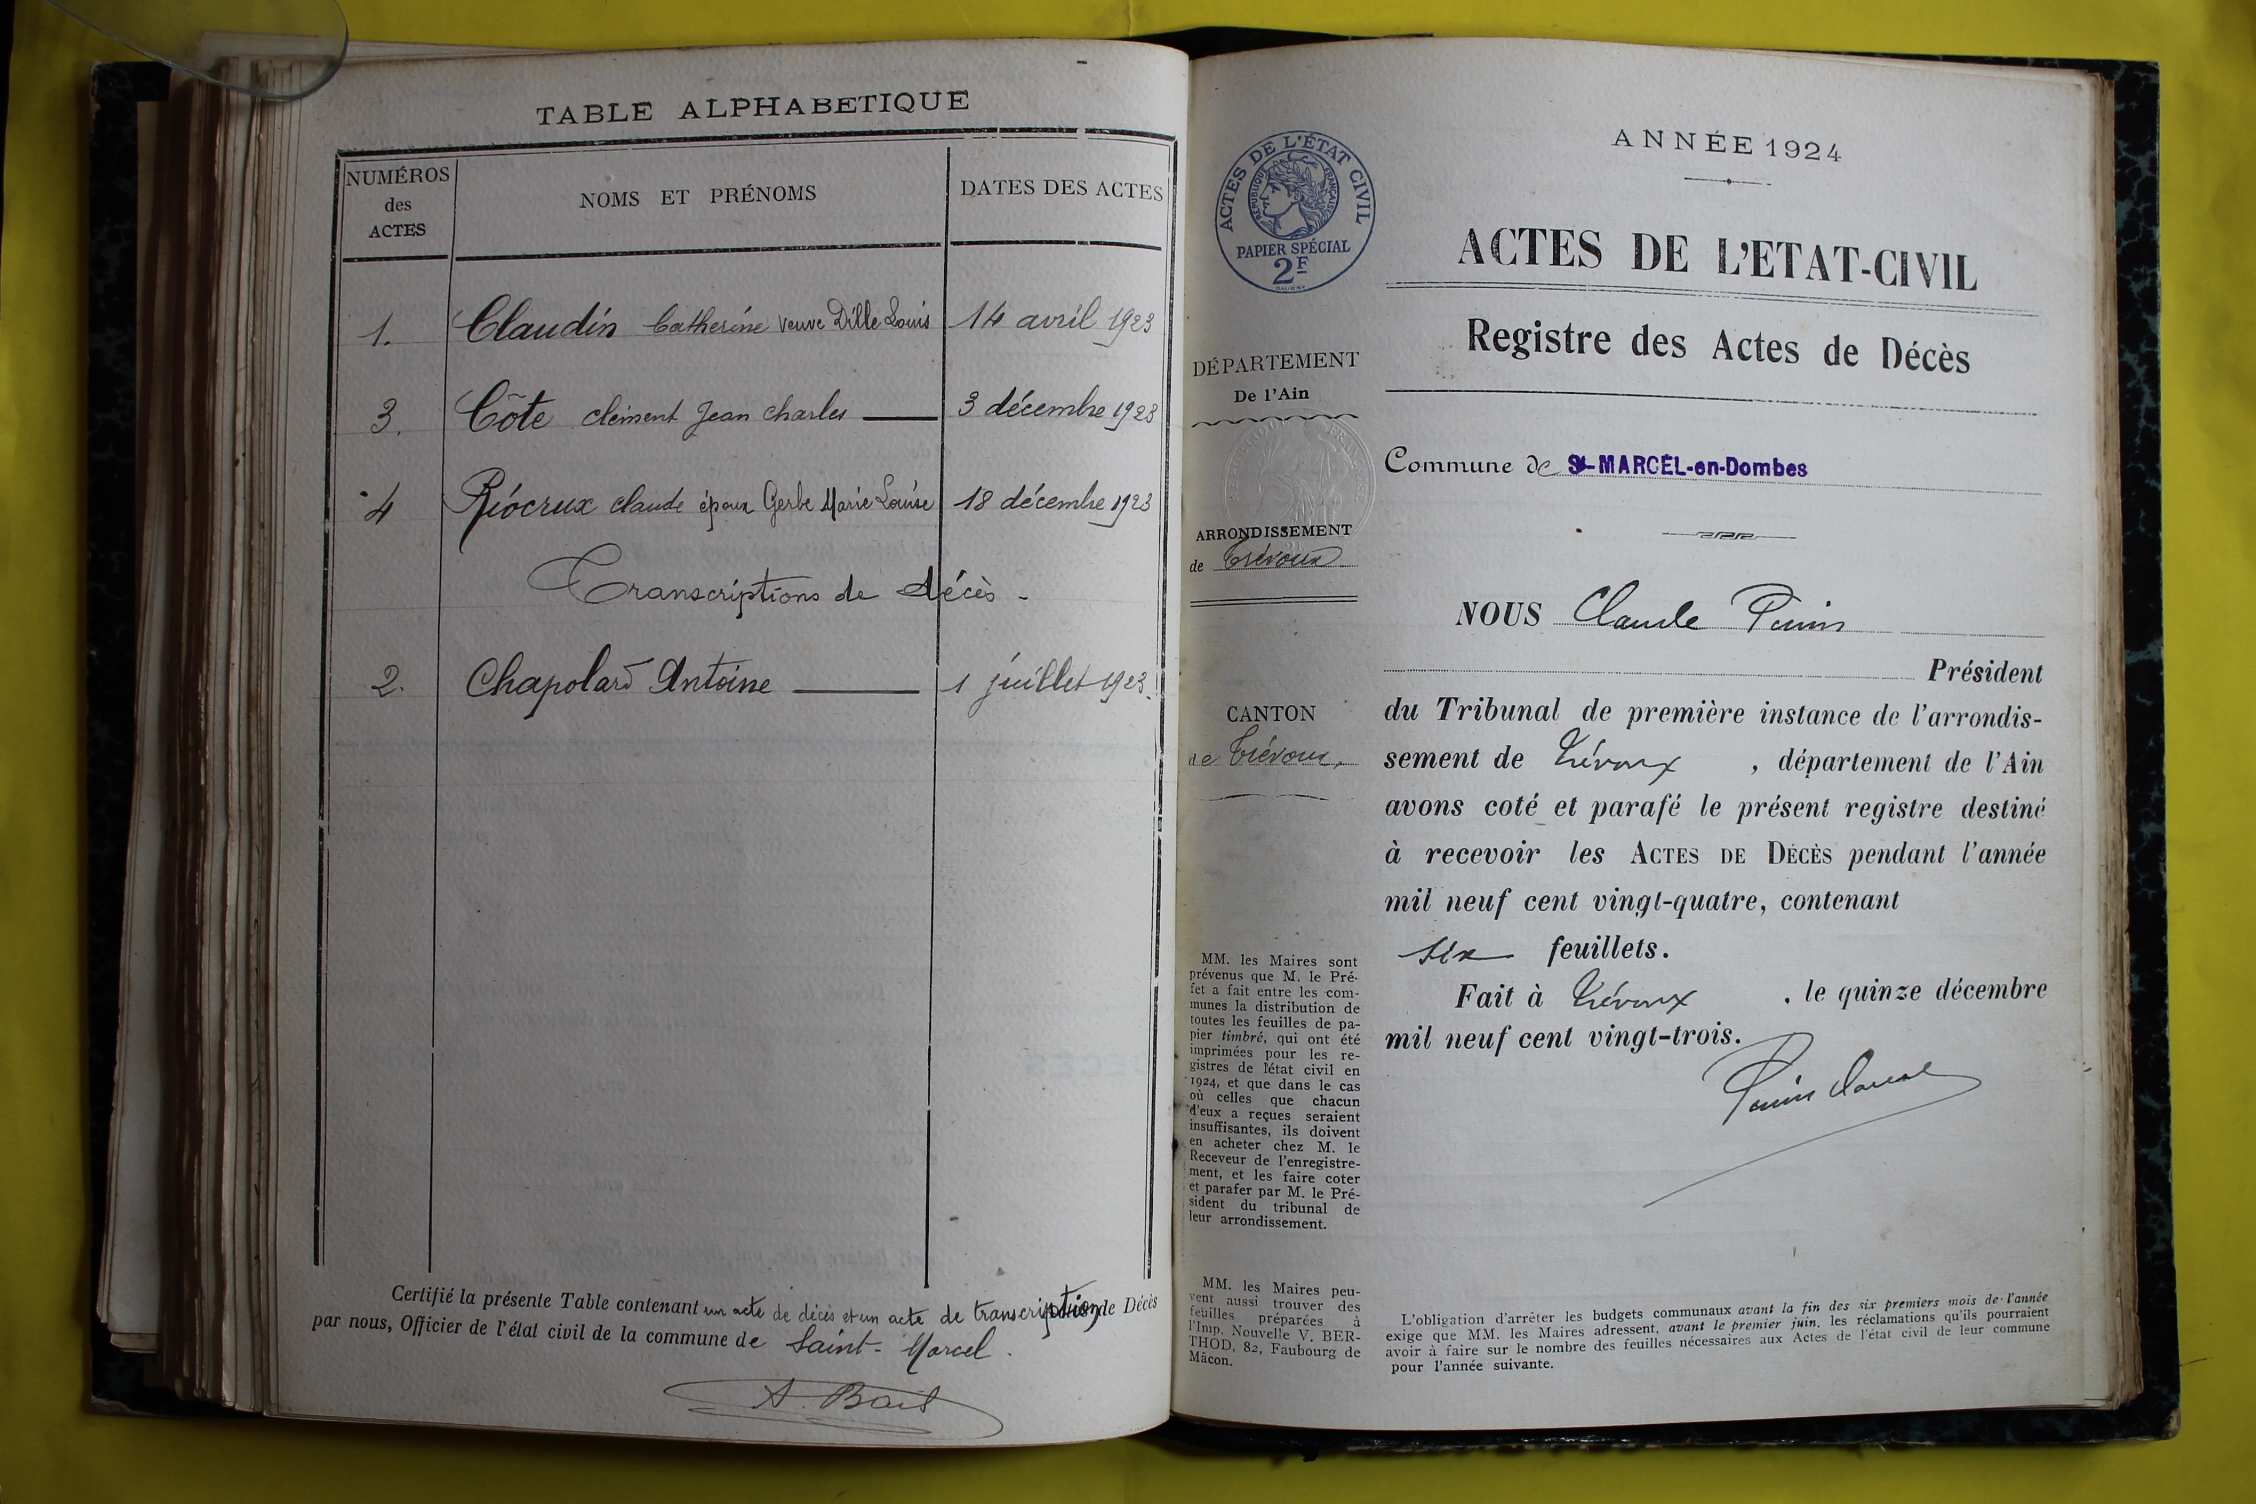 TABLE ALPHABETIQUE
NUMÉROS des ACTES
NOMS ET PRÉNOMS
DATES DES ACTES
1. Claudin Catherine veuve Dille Louis 14 avril 1923
3. Côte clément Jean charles 3 décembre 1923
4 Riócrux claude époux Gerbe Marie Louise 18 décembre 1923
Transcriptions de décès -
2. Chapolard Antoine 1 juillet 1923.
Certifié la présente Table contenant un acte de décès et un acte de transcription de Décès
par nous, Officier de l'état civil de la commune de Saint-Marcel.
A. Bail
ACTES DE L'ÉTAT CIVIL
RÉPUBLIQUE FRANÇAISE
PAPIER SPÉCIAL
2F
DÉPARTEMENT
De l'Ain
ARRONDISSEMENT
de Trévoux
CANTON
de Trévoux,
MM. les Maires sont
prévenus que M. le Pré-
fet a fait entre les com-
munes la distribution de
toutes les feuilles de pa-
pier timbré, qui ont été
imprimées pour les re-
gistres de l'état civil en
1924, et que dans le cas
où celles que chacun
d'eux a reçues seraient
insuffisantes, ils doivent
en acheter chez M. le
Receveur de l'enregistre-
ment, et les faire coter
et parafer par M. le Pré-
sident du tribunal de
leur arrondissement.
MM. les Maires peu-
vent aussi trouver des
feuilles préparées à
l'Imp. Nouvelle V. BER-
THOD, 82, Faubourg de
Mâcon.
ANNÉE 1924
ACTES DE L'ETAT-CIVIL
Registre des Actes de Décès
Commune de St-MARCEL-en-Dombes
NOUS Claude
Président
du Tribunal de première instance de l'arrondis-
sement de Trévoux, département de l'Ain
avons coté et parafé le présent registre destiné
à recevoir les ACTES DE DÉCÈS pendant l'année
mil neuf cent vingt-quatre, contenant
six feuillets.
Fait à Trévoux, le quinze décembre
mil neuf cent vingt-trois.
L'obligation d'arrêter les budgets communaux avant la fin des six premiers mois de l'année
exige que MM. les Maires adressent, avant le premier juin, les réclamations qu'ils pourraient
avoir à faire sur le nombre des feuilles nécessaires aux Actes de l'état civil de leur commune
pour l'année suivante.